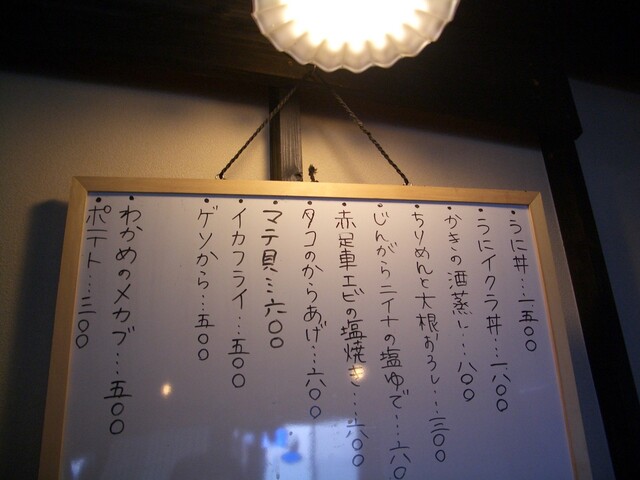 ・うに丼…一五〇〇
・うにイクラ丼…一八〇〇
・かきの酒蒸し…八〇〇
・ちりめんと大根おろし…三〇〇
・じんがらニイナの塩ゆで…六〇
・赤足車エビの塩焼き…六〇〇
・タコのからあげ…六〇〇
・マテ貝…六〇〇
・イカフライ…五〇〇
・ゲソから…五〇〇
・わかめのメカブ…五〇〇
・ポテト…三〇〇